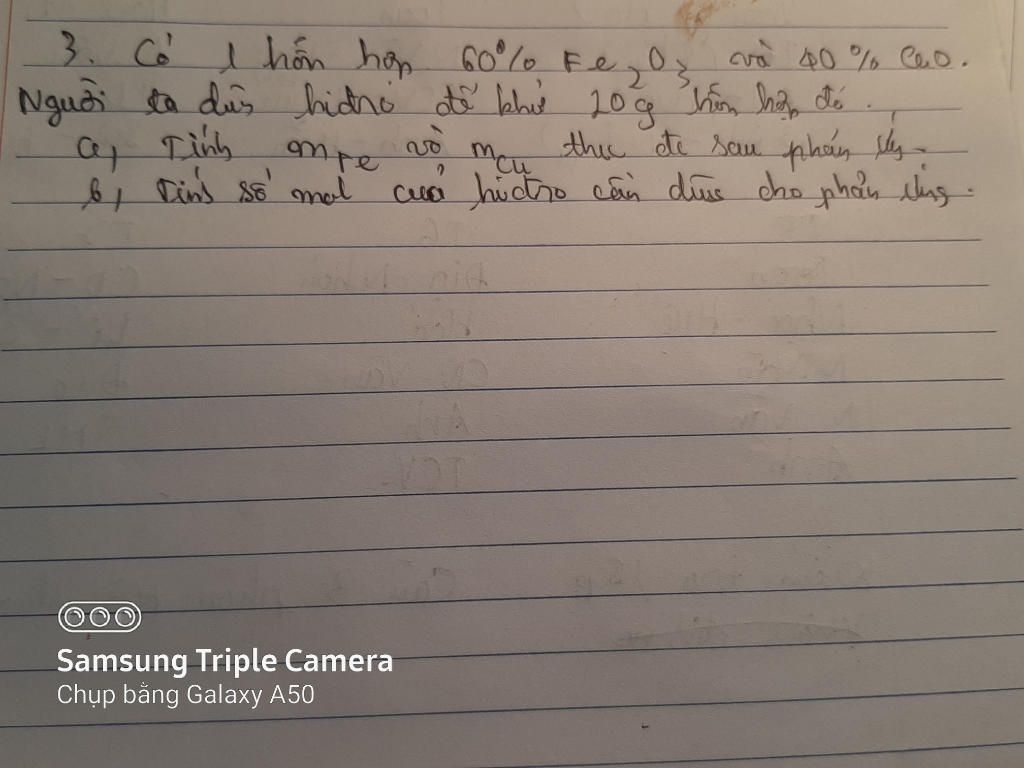 3. Có 1 hỗn hợp 60% Fe2O3 và 40% CuO.
Người ta dùng hiđrô để khử 20g hỗn hợp đó.
a, Tính mFe và mCu thu đc sau phản ứng.
b, Tính số mol của hiđrô cần dùng cho phản ứng.
Samsung Triple Camera
Chụp bằng Galaxy A50